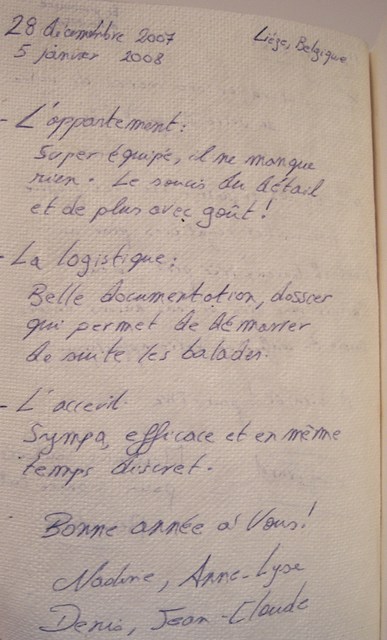 28 décembre 2007 Liége, Belgique
5 janvier 2008
- L'appartement:
Super équipé, il ne manque
rien. Le soucis du détail
et de plus avec goût!
- La logistique:
Belle documentation, dossier
qui permet de démarrer
de suite les balades.
- L'acceuil.
Sympa, efficace et en même
temps discret.
Bonne année à Vous!
Nadine, Anne-Lyse
Denis, Jean-Claude